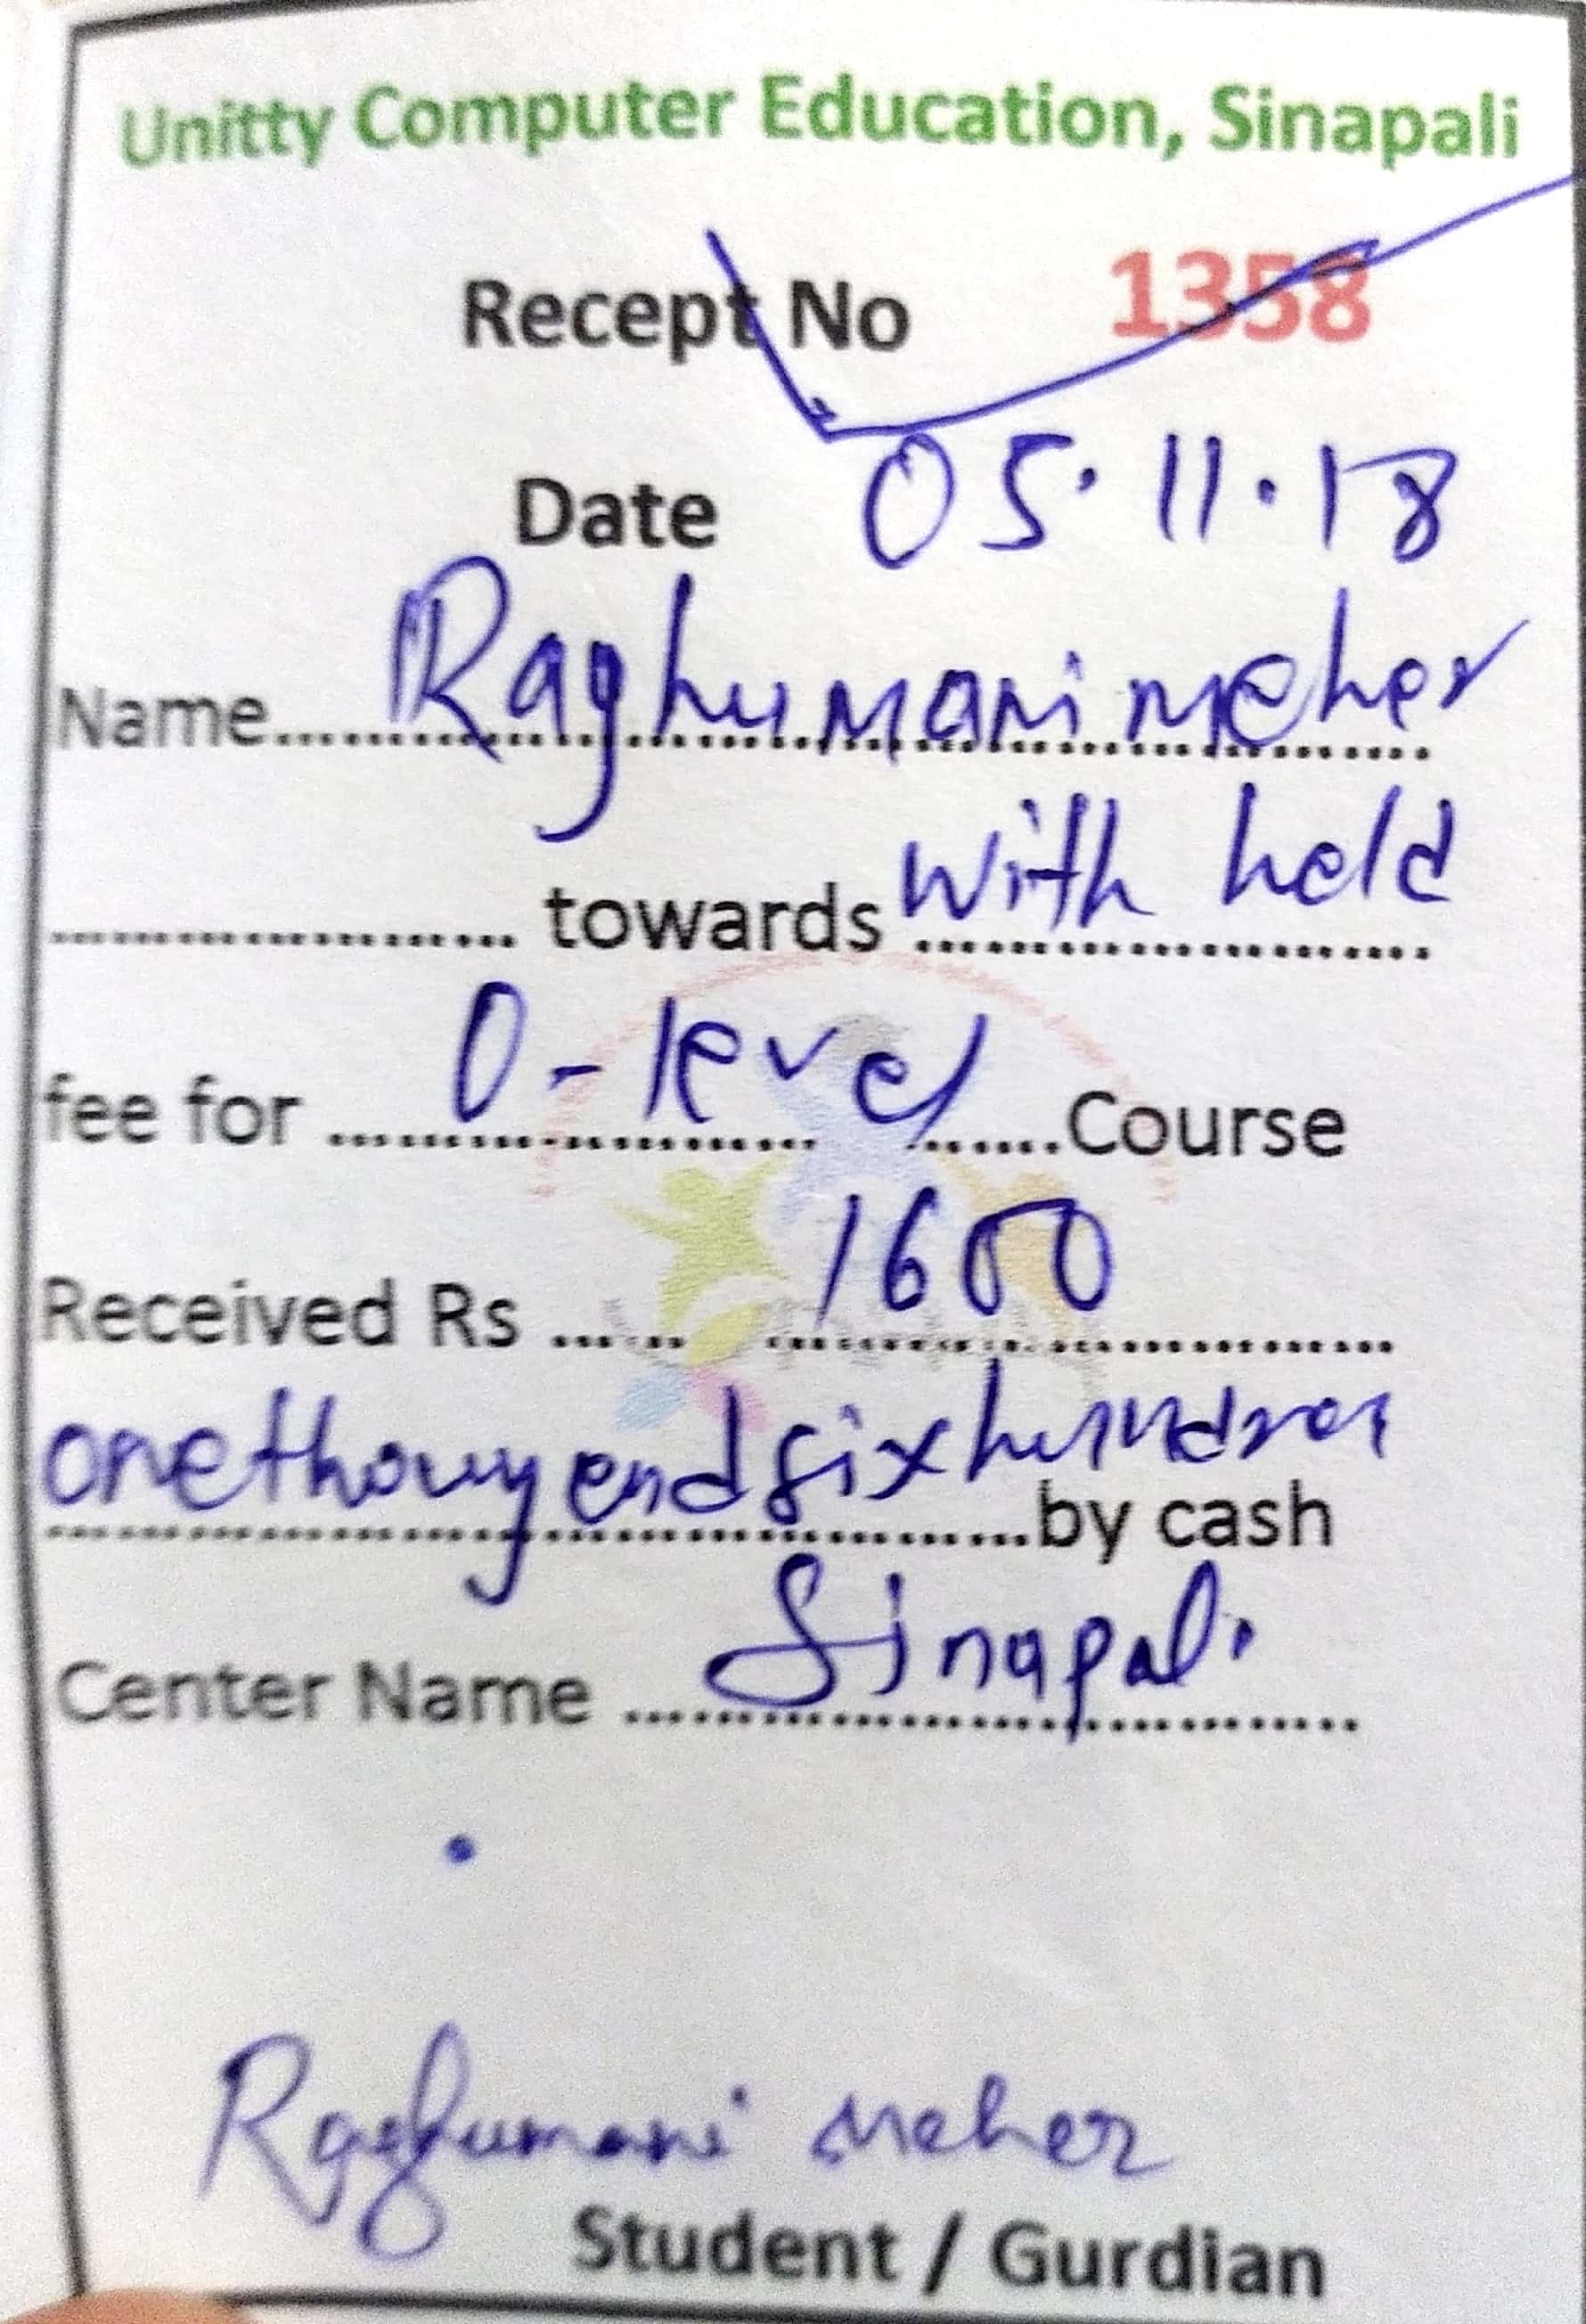 Unitty Computer Education, Sinapali
Recept No 1358
Date 05.11.18
Name.......Raghumani meher
.................... towards with held
fee for .......O-level.......Course
Received Rs .......1600.......
one thousend six hundred
.......by cash
Center Name .......Sinapali
Raghumani Meher
Student / Gurdian